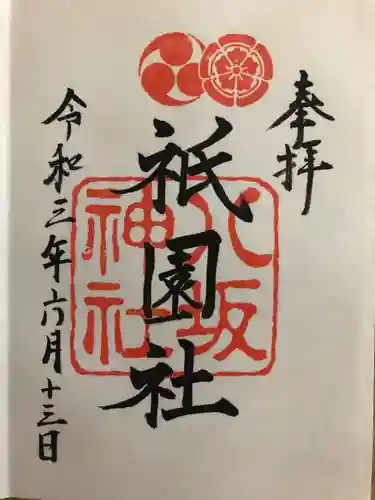 奉拝
八坂
神社
祇園社
令和三年六月十三日